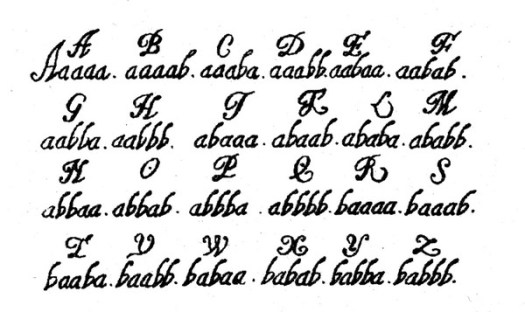 A B C D E F
Aaaaa. aaaab. aaaba. aaabb. aabaa. aabab.
G H I K L M
aabba. aabbb. abaaa. abaab. ababa. ababb.
N O P Q R S
abbaa. abbab. abbba. abbbb. baaaa. baaab.
T V W X Y Z
baaba. baabb. babaa. babab. babba. babbb.